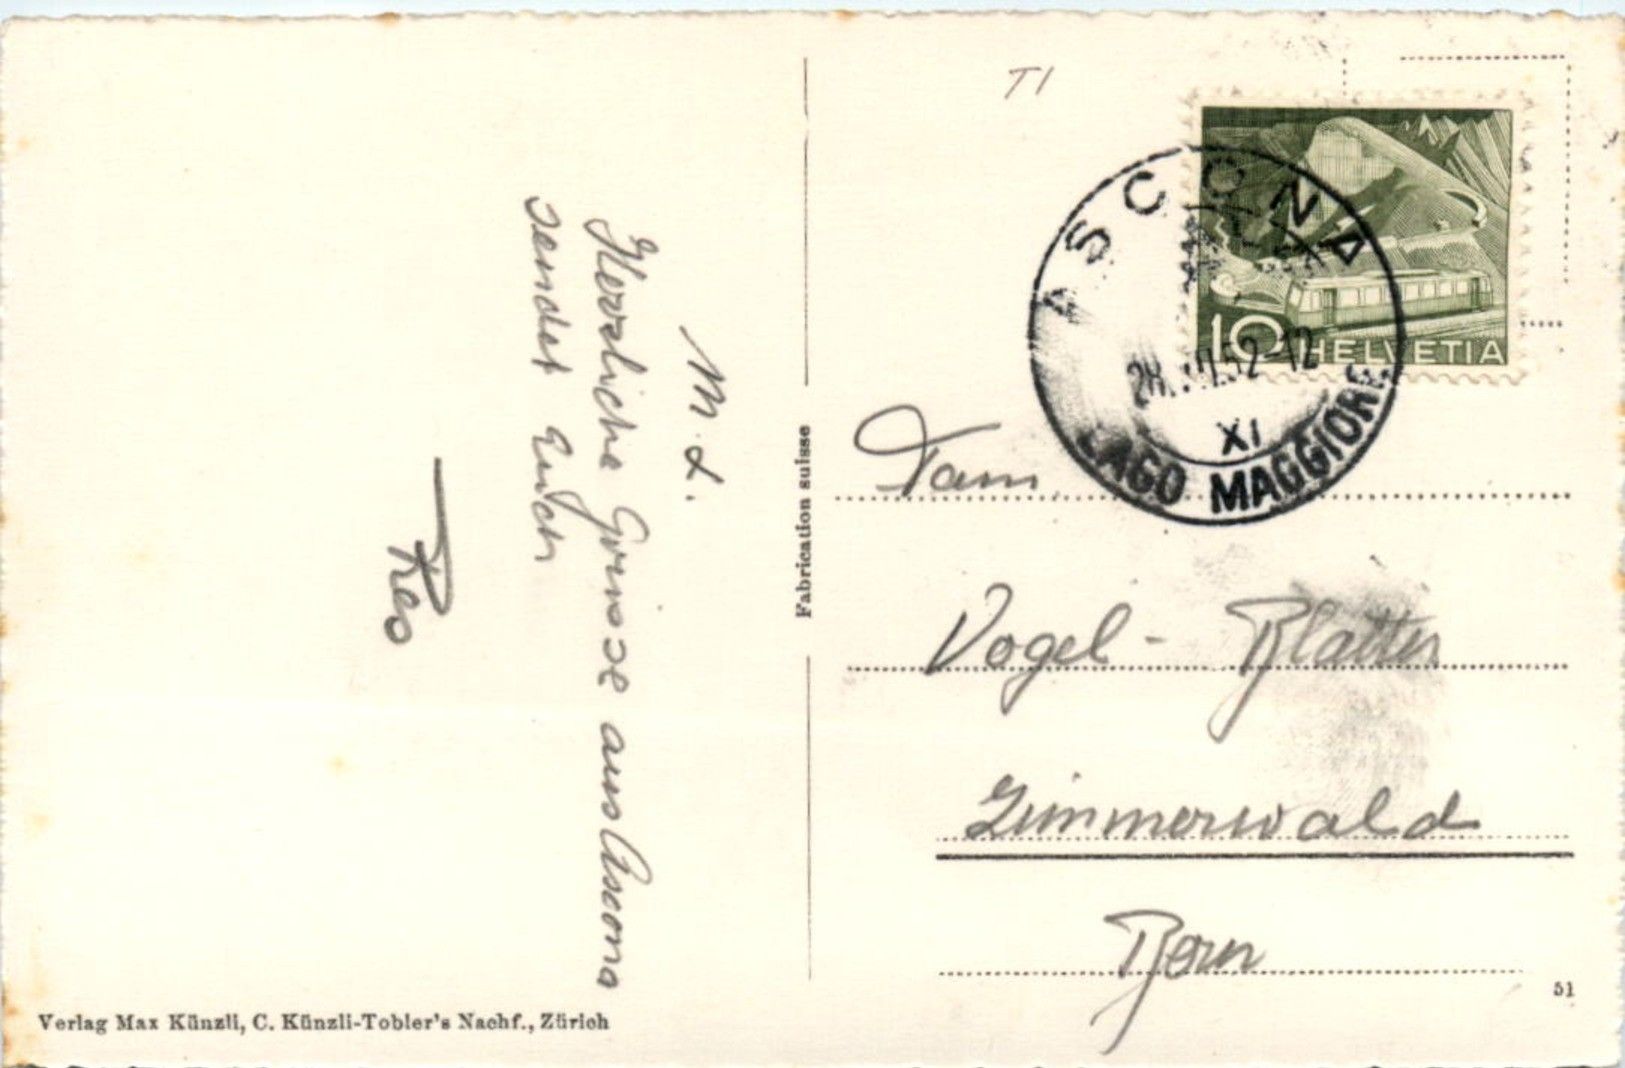 M. L.
Herzliche Grüsse aus Ascona
sendet Euch
Fabrication suisse
Verlag Max Künzli, C. Künzli-Tobler's Nachf., Zürich
TI
10 HELVETIA
ASCONA
52-12
XI
LAGO MAGGIORE
Fam.
Vogel - Blatter
Zimmerwald
Bern
51